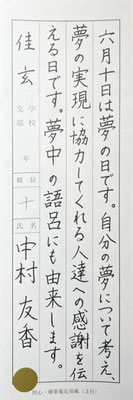 六月十日は夢の日です。自分の夢について考え、
夢の実現に協力してくれる人達への感謝を伝
える日です。夢中の語呂にも由来します。
佳玄
支部 学校
年
級位
十
氏名
中村友香
附心・硬筆規定用紙（3行）